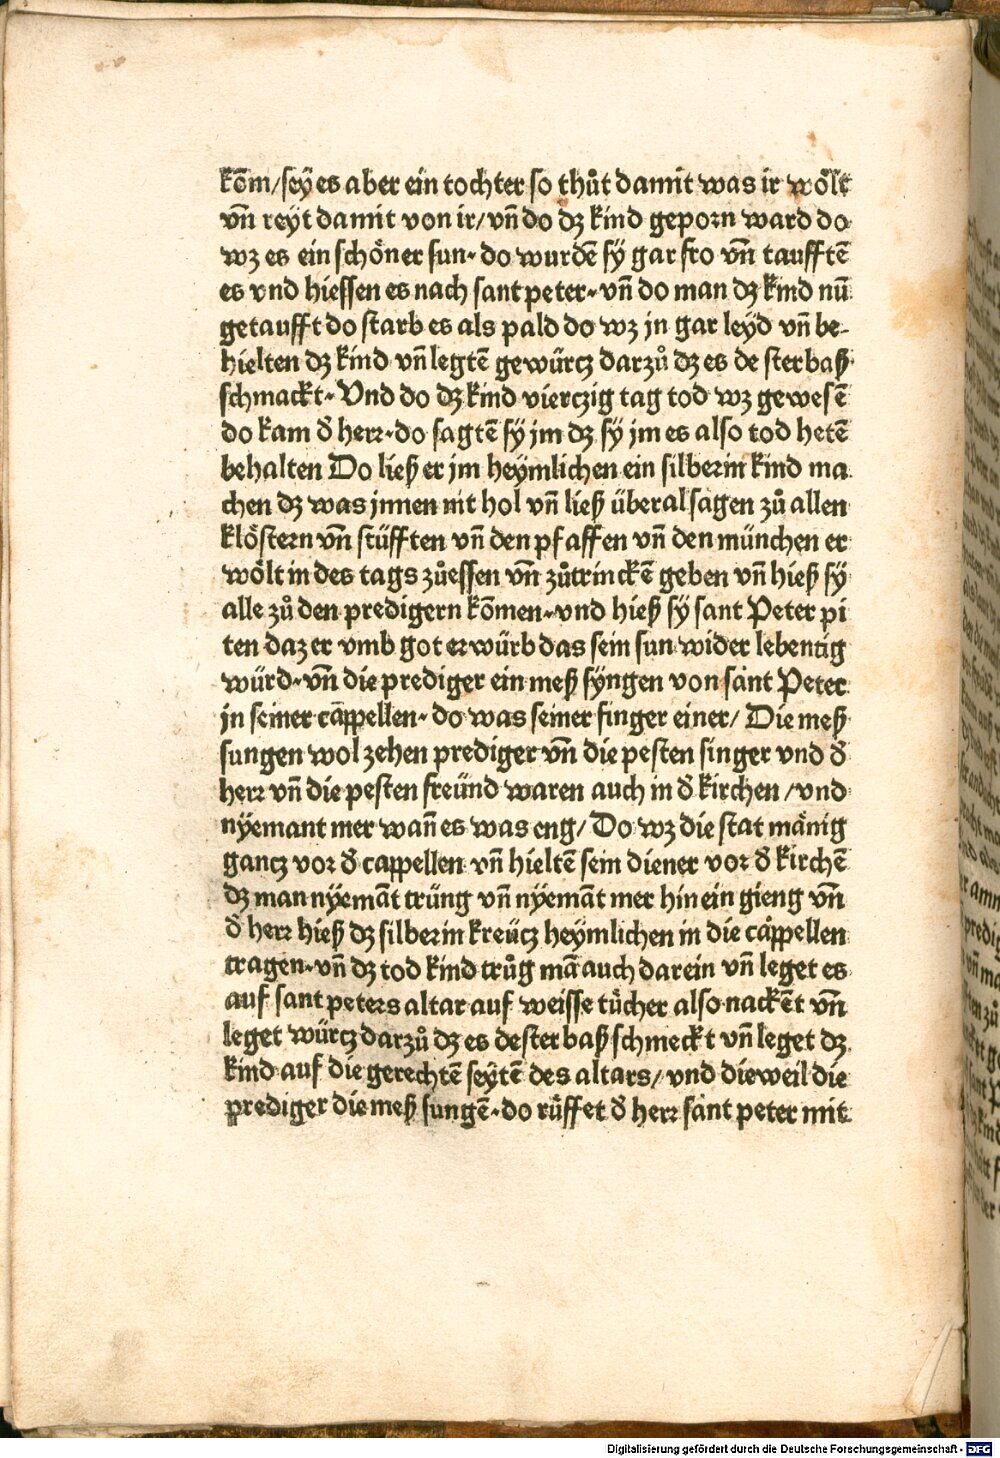 kōm/seÿ es aber ein tochter so thůt damit was ir wölt
vn̄ reyt damit von ir/vn̄ do dz kind geporn ward do
wz es ein schöner sun· do wurdē sÿ gar fro vn̄ taufftē
es vnd hiessen es nach sant peter· vn̄ do man dz kind nū
getaufft do starb es als pald do wz jn gar leÿd vn̄ be-
hielten dz kind vn̄ legtē gewürcz darzů dz es de ster baß
schmackt· Vnd do dz kind vierczig tag tod wz gewesē
do kam d̄ herr· do sagtē sÿ jm dz sÿ jm es also tod hetē
behalten Do ließ er jm heÿmlichen ein silberin kind ma
chen dz was jnnen nit hol vn̄ ließ überal sagen zů allen
klöstern vn̄ stüfften vn̄ den pfaffen vn̄ den münchen er
wölt in des tags zůessen vn̄ zůtrinckē geben vn̄ hieß sÿ
alle zů den predigern kōmen· vnd hieß sÿ sant Peter pi
ten daz er vmb got erwürb das sein sun wider lebentig
würd· vn̄ die prediger ein meß sÿngen von sant Peter
jn seiner cappellen· do was seiner finger einer/ Die meß
sungen wol zehen prediger vn̄ die pesten singer vnd d̄
herr vn̄ die pesten freünd waren auch in d̄ kirchen /vnd
nÿemant mer wan̄ es was eng/ Do wz die stat mänig
gancz vor d̄ cappellen vn̄ hieltē sein diener vor d̄ kirchē
dz man nÿemāt trüng vn̄ nyemāt mer hin ein gieng vn̄
d̄ herr hieß dz silberin kreücz heÿmlichen in die cappellen
tragen· vn̄ dz tod kind trůg mā auch darein vn̄ leget es
auf sant peters altar auf weisse tücher also nackēt vn̄
leget würcz darzů dz es dester baß schmeckt vn̄ leget dz
kind auf die gerechtē seÿtē des altars/ vnd dieweil die
prediger die meß sungē· do rüffet d̄ herr sant peter mit
Digitalisierung gefördert durch die Deutsche Forschungsgemeinschaft - DFG